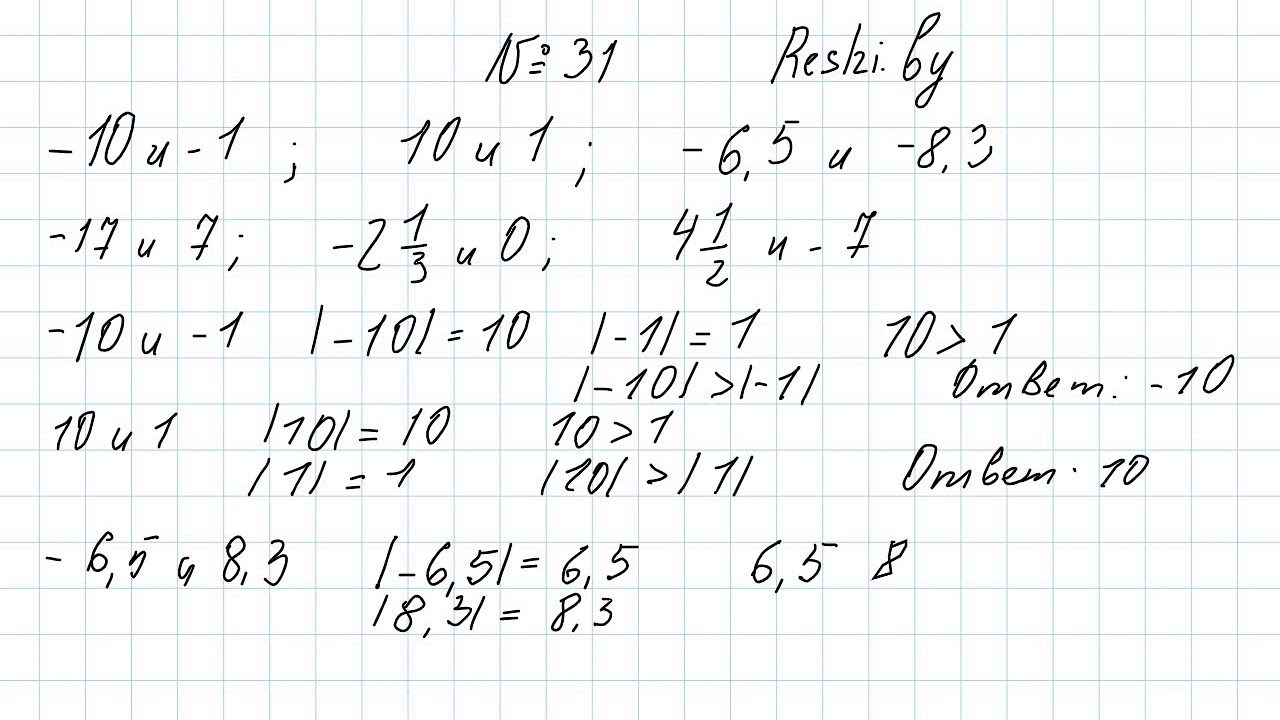 № 31 Reshi.by
-10 и -1 ; 10 и 1 ; -6,5 и -8,3
-17 и 7 ; -2 1/3 и 0 ; 4 1/2 и -7
-10 и -1 |-10| = 10 |-1| = 1 10 > 1
|-10| > |-1| Ответ: -10
10 и 1 |10| = 10 10 > 1
|1| = 1 |10| > |1| Ответ. 10
-6,5 и 8,3 |-6,5| = 6,5 6,5 8
|8,3| = 8,3